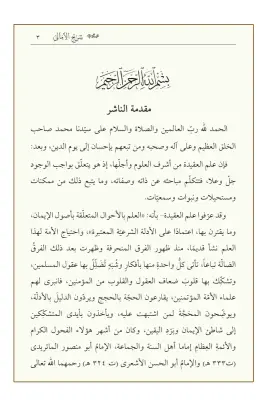 شرح الأمالي ٣
بسم الله الرحمن الرحيم
مقدمة الناشر
الحمد لله ربّ العالمين والصلاة والسلام على سيّدنا محمد صاحب
الخلق العظيم وعلى آله وصحبه ومن تبعهم بإحسان إلى يوم الدين، وبعد:
فإن علم العقيدة من أشرف العلوم وأجلّها، إذ هو يتعلّق بواجب الوجود
جلّ وعلا، فتتكلّم مباحثه عن ذاته وصفاته، وما يتبع ذلك من ممكنات
ومستحيلات ونبوات وسمعيّات.
وقد عرّفوا علم العقيدة- بأنه: «العلم بالأحوال المتعلّقة بأصول الإيمان،
وما يقترن بها، اعتمادًا على الأدلّة الشرعيّة المعتبرة»، واحتياج الأمة لهذا
العلم نشأ قديمًا، منذ ظهور الفرق المنحرفة وظهرت بعد ذلك الفرق
الضالّة تباعاً، تأتي كلّ واحدة منها بأفكار وشُبهٍ تُضلّل بها عقول المسلمين،
وتشكّك بها قلوب ضعاف العقول والقلوب من المؤمنين، فانبرى لهم
علماء الأمّة المؤتمنين، يقارعون الحجّة بالحجج ويردّون الدليل بالأدلّة،
ويوضّحون المحجّة لمن اشتبهت عليه، ويأخذون بأيدي المتشكّكين
إلى شاطئ الإيمان وبرّد اليقين، وكان من أشهر هؤلاء الفحول الكرام
والأئمة العِظام إماما أهل السنة والجماعة، الإمام أبو منصور الماتريدي
(ت٣٣٣ هـ) والإمام أبو الحسن الأشعري (ت ٣٢٤ هـ) رحمهما الله تعالى